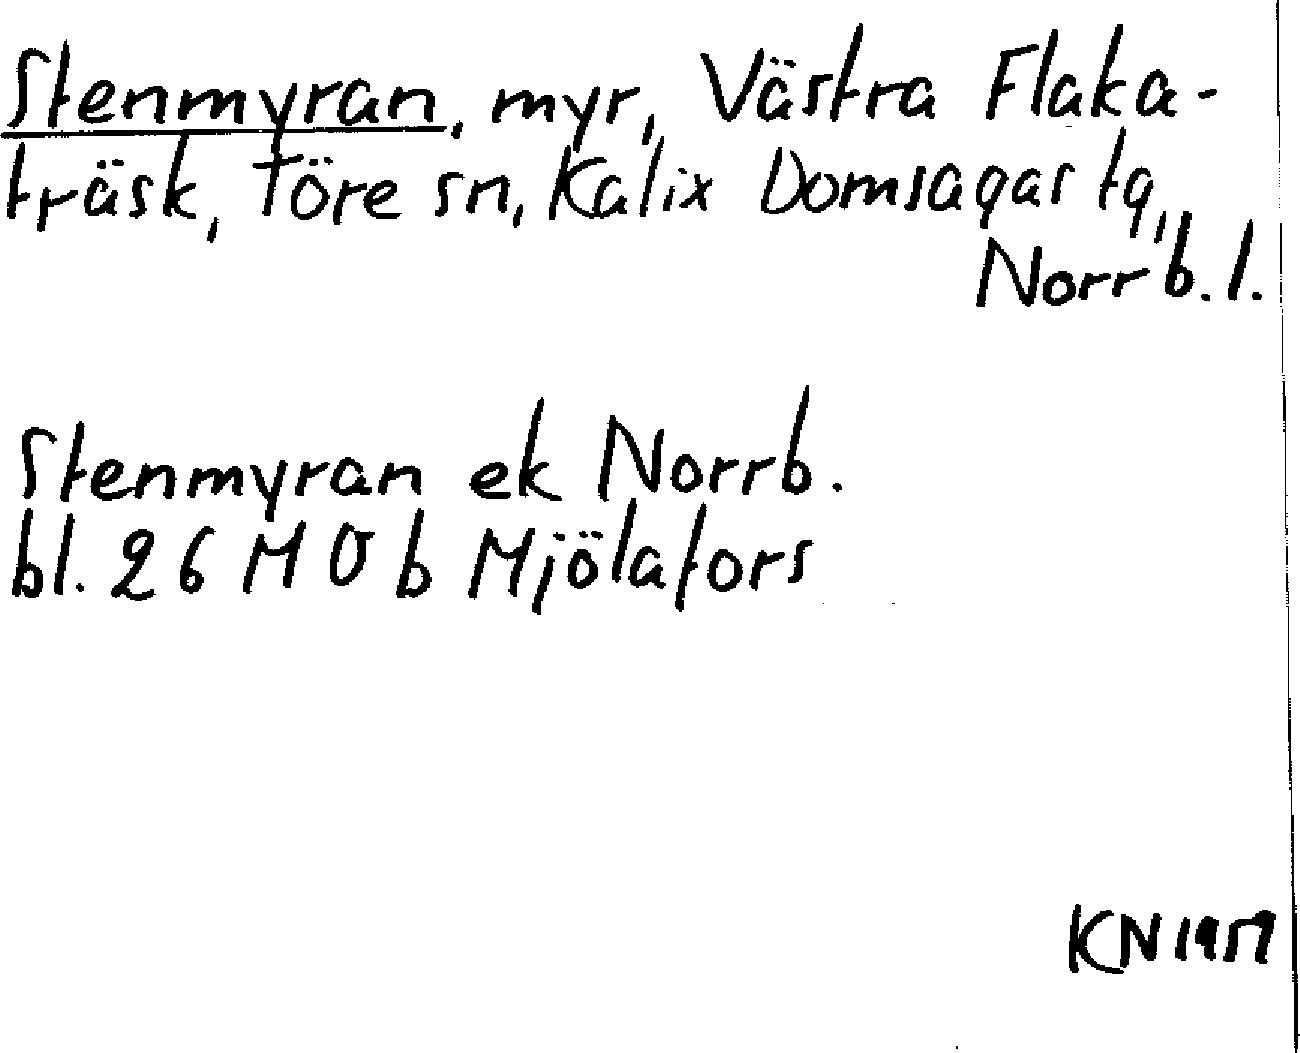 Stenmyran, myr, Västra Flaka-
träsk, Töre sn, Kalix Domsagas tg,
Norrb. l.
Stenmyran ek Norrb.
bl. 26 M O b Mjölafors
KN 1959